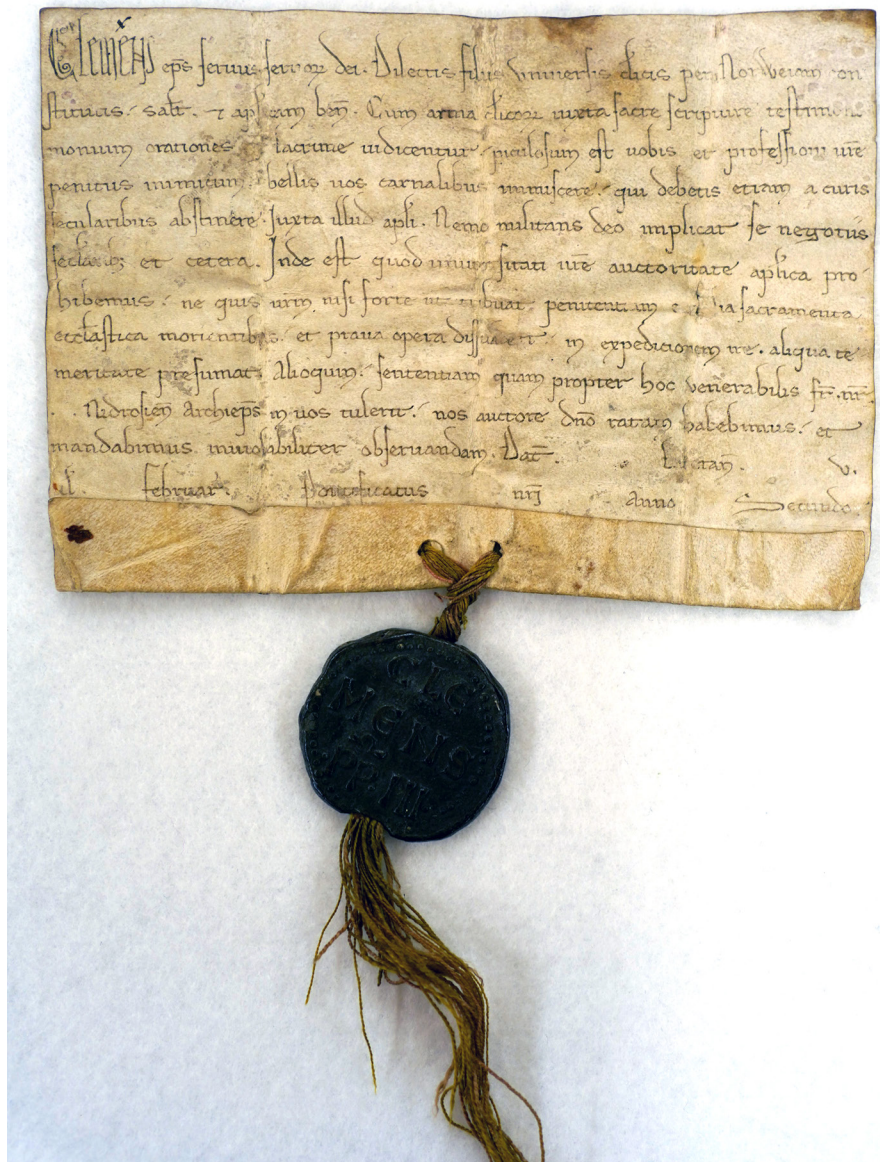 Clemens eps seruus seruor dei. Dilectis filiis vniuersis clicis per Norweiam con
stitutis. salt. et aplicam ben. Cum arma clicor iuxta sacre scripture testimo
monium orationes lacrime iudicentur. piculosum est uobis et professioni ure
penitus inimicum. bellis uos carnalibus immiscere. qui debetis etiam a curis
secularibus abstinere. Iuxta illud apli. Nemo militans deo implicat se negotiis
et cetera. Inde est quod uniuersitati ure auctoritate aplica pro
hibemus. ne quis urm nisi forte ut tribuat penitentiam sacramenta
ecclastica morientibus. et praua opera dissuadeat. in expeditionem ire. aliqua te
meritate presumat. Alioquin. sententiam quam propter hoc uenerabilis fr. nr.
. . Nidrosien Archieps in uos tulerit. nos auctore dno ratam habebimus. et
mandabimus inuiolabiliter obseruandam. Dat. Lateran. V.
kl. februar. Pontificatus nri Anno Secundo.
CLE
MENS
PP. III